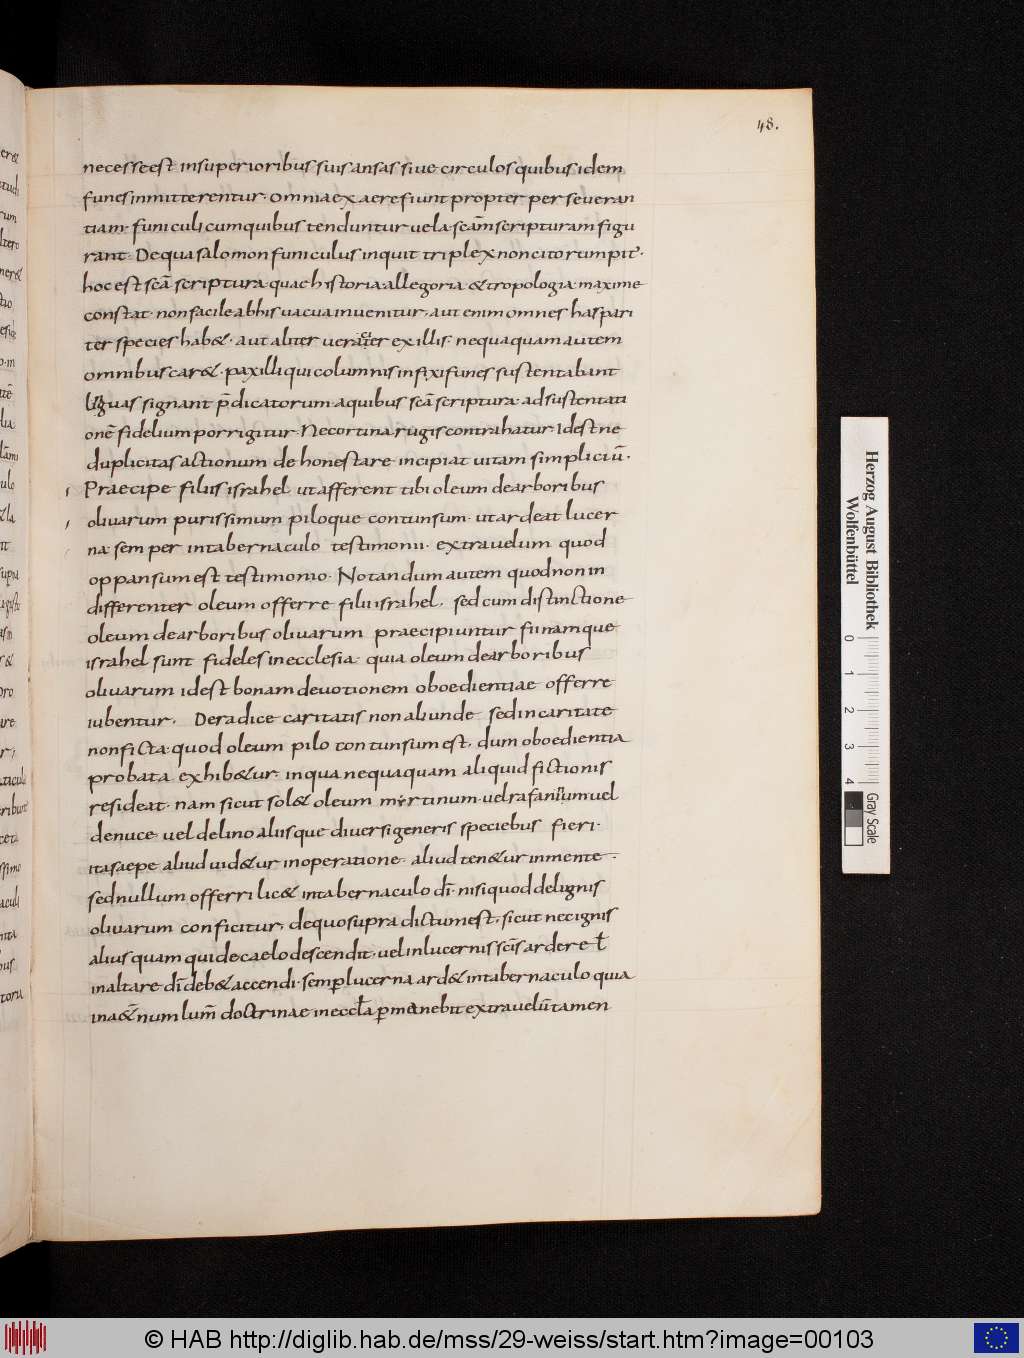 48.
necesse est insuperioribus suis ansas siue circulos quibus idem
funes inmitterentur. omnia ex aere fiunt propter perseueran
tiam. funiculi cum quibus tenduntur uela. scam̄ scripturam figu
rant. De qua salomon funiculus inquit triplex non cito rumpit̄.
hoc est scā scriptura quae historia allegoria & tropologia maxime
constat. non facile ab his uacua inuenitur. aut enim omnes has pari
ter species hab&. aut aliter uerac̣ịter ex illis. nequaquam autem
omnibus car&. paxilli qui columnis infixi funes sustentabant
linguas signant p̄dicatorum aquibus scā scriptura ad sustentati
onē fidelium porrigitur. Ne cortina rugis contrahatur. Idest ne
duplicitas actionum dehonestare incipiat uitam simpliciū.
Praecipe filiis israhel ut afferent tibi oleum de arboribus
oliuarum purissimum piloque contunsum. ut ardeat lucer
na semper in tabernaculo testimonii. extra uelum quod
oppansum est testimonio. Notandum autem quod non in
differenter oleum offerre filii israhel. sed cum distinctione
oleum de arboribus oliuarum praecipiuntur filii namque
israhel sunt fideles in ecclesia. quia oleum de arboribus
oliuarum idest bonam deuotionem oboedientiae offerre
iubentur. De radice caritatis non aliunde sed in caritate
non ficta. quod oleum pilo contunsum est. dum oboedientia
probata exhib&ur. in qua nequaquam aliquid fictionis
resideat. nam sicut sol& oleum myrtinum. uel rafaninum uel
denuce. uel delino aliisque diuersi generis speciebus fieri.
ita saepe aliud uid&ur in operatione. aliud ten&ur in mente.
sed nullum offerri lic& in tabernaculo dī. nisi quod de lignis
oliuarum conficitur, de quo supra dictum est. sicut nec ignis
alius quam qui de caelo descendit. uel in lucernis scīs ardere ł
in altare dī deb& accendi. semp lucerna ard& in tabernaculo quia
in a&̄num lum̄ doctrinae in eccła pmanebit extra uelū tamen
Herzog August Bibliothek
Wolfenbüttel
0 1 2 3 4
Gray Scale
© HAB http://diglib.hab.de/mss/29-weiss/start.htm?image=00103